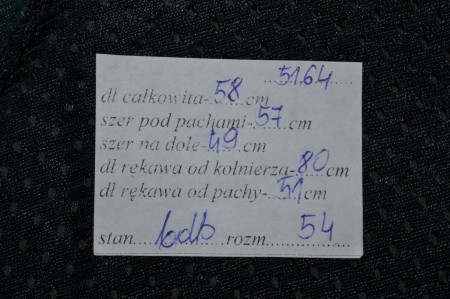 5164
dł całkowita-58cm
szer pod pachami-57cm
szer na dole-49cm
dł rękawa od kołnierza-80cm
dł rękawa od pachy-51cm
stan....bdb....rozm....54....